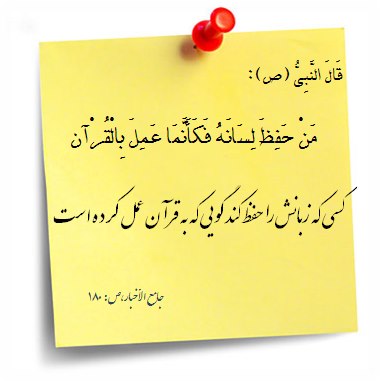 قَالَ النَّبِيُّ (ص):
مَنْ حَفِظَ لِسَانَهُ فَكَأَنَّمَا عَمِلَ بِالْقُرْآن
کسی که زبانش را حفظ کند گویی که به قرآن عمل کرده است
جامع الأخبار، ص: ۱۸۰